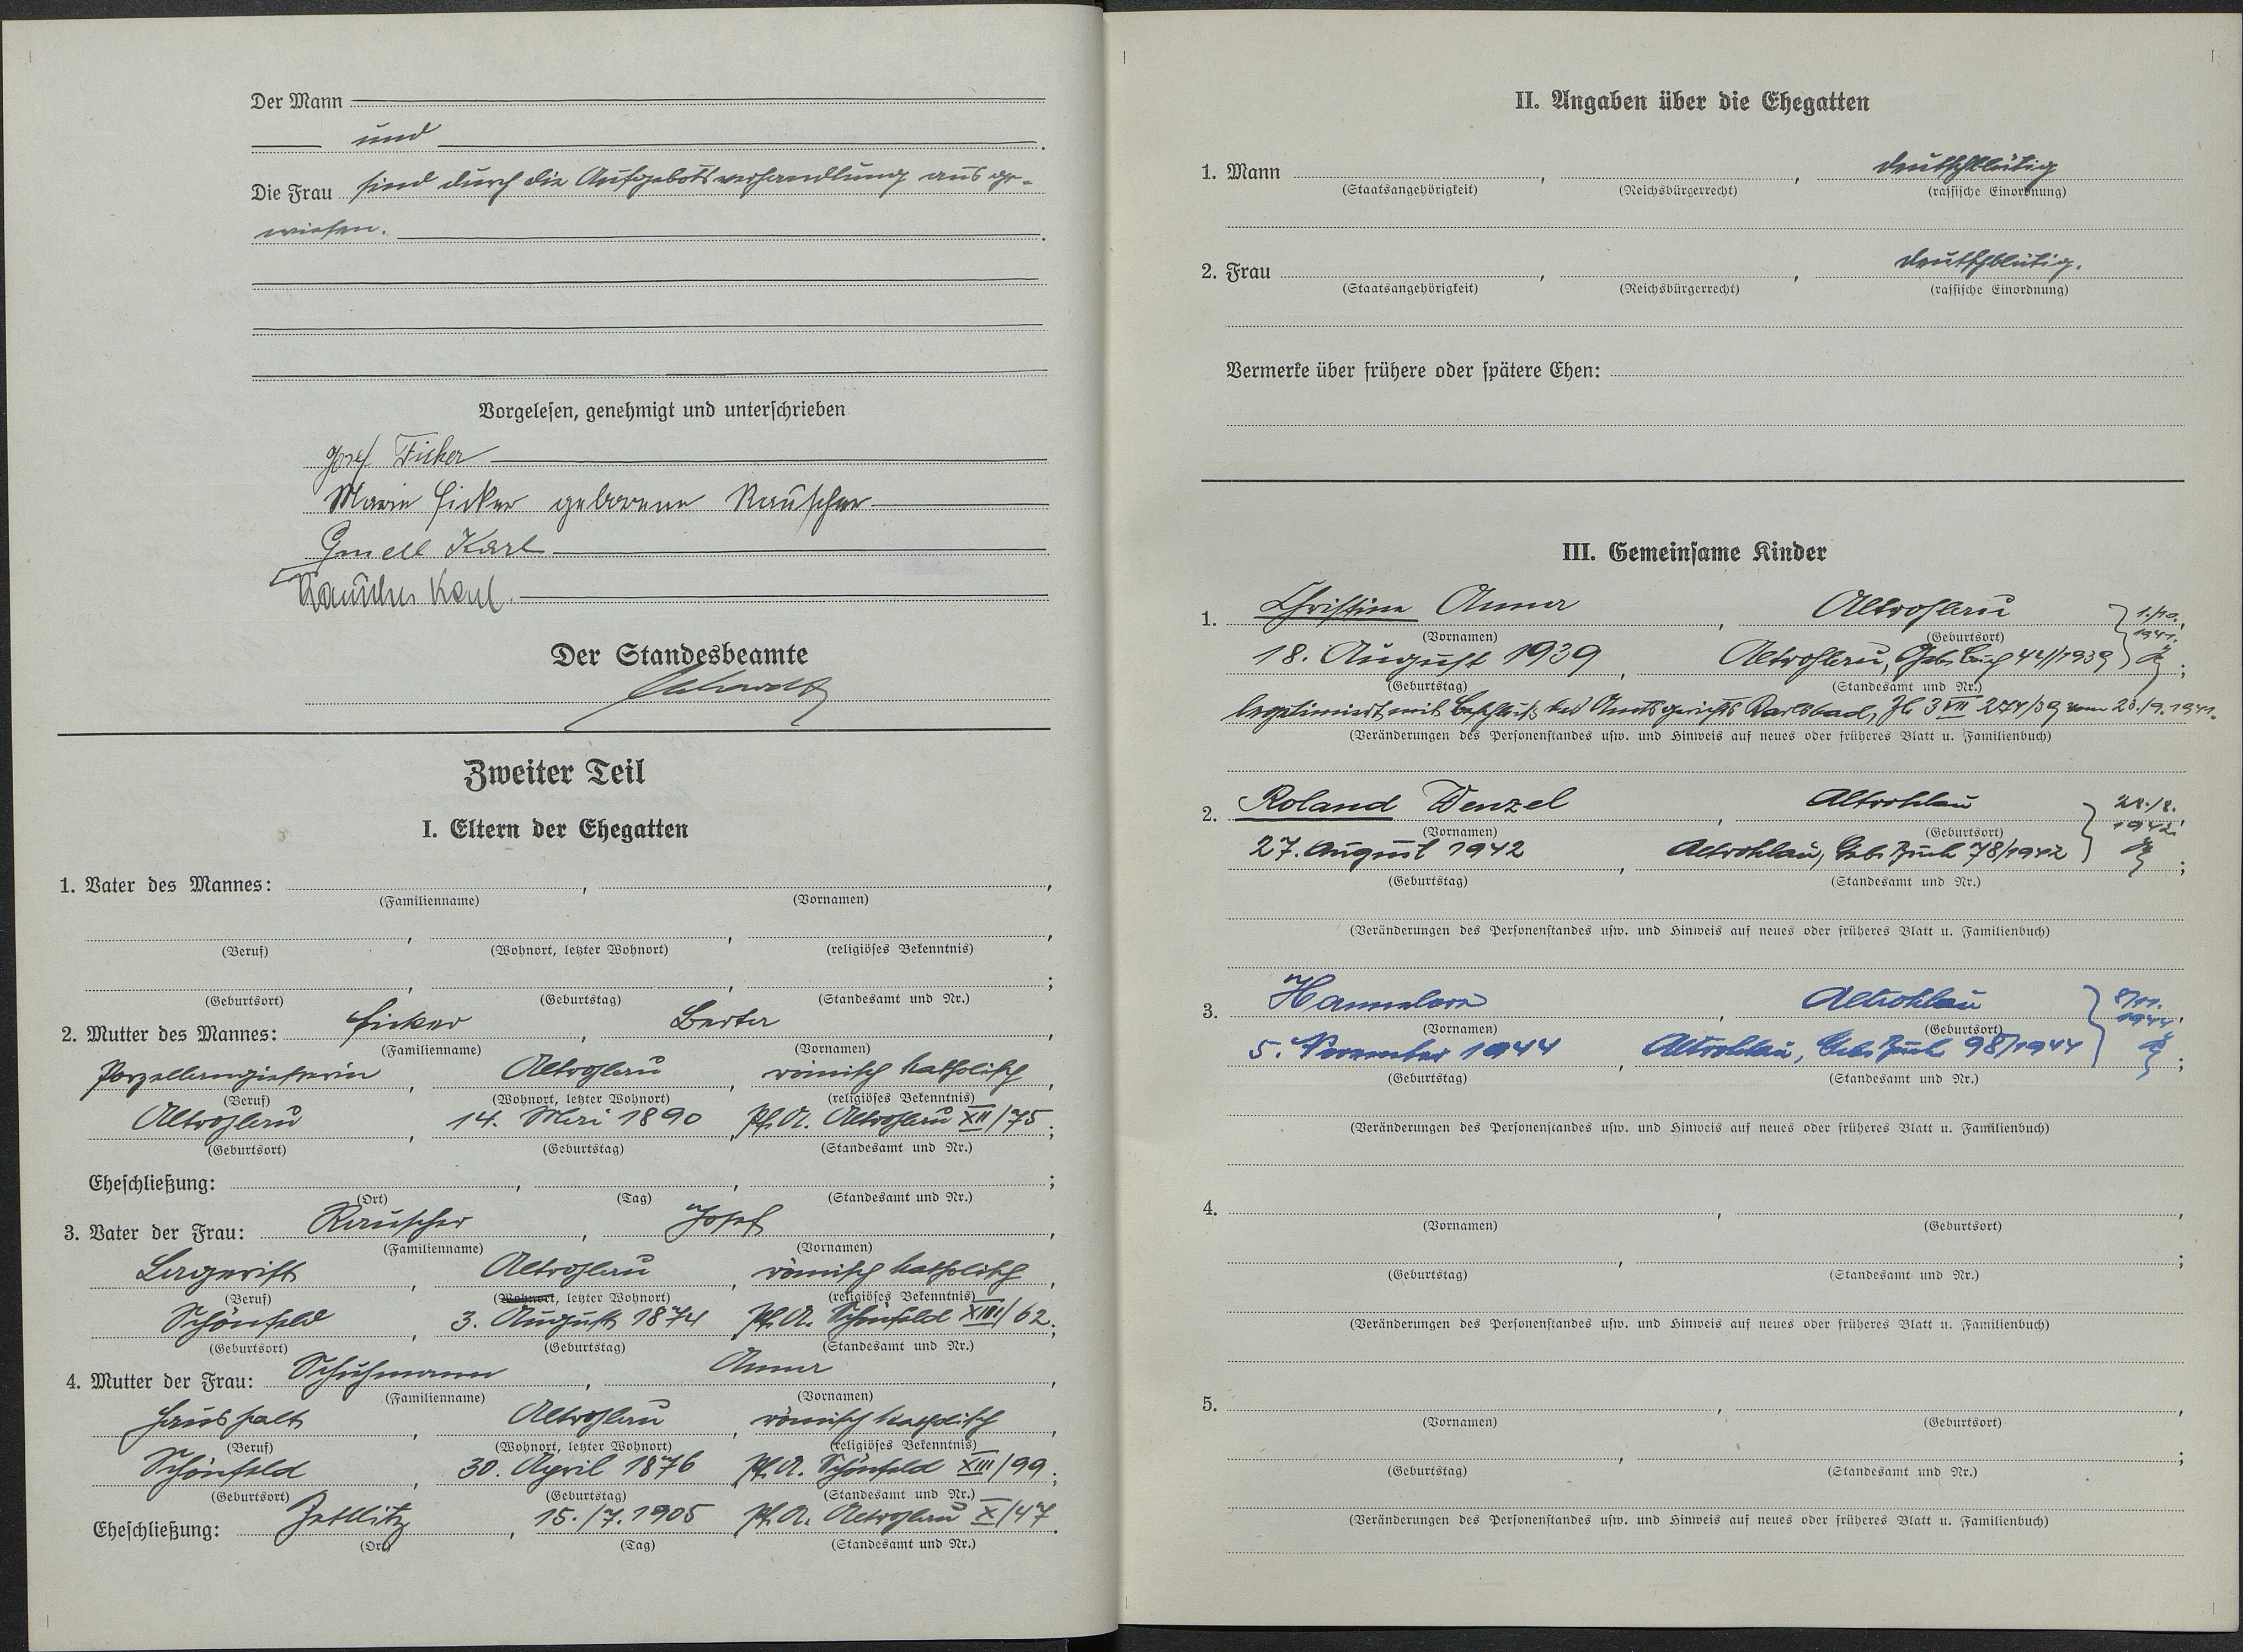 Der Mann
und
Die Frau sind durch die Aufgebotsverhandlung ausge-
wiesen.
Vorgelesen, genehmigt und unterschrieben
Josef Ficker
Marie Ficker geborene Rauscher
Gmell Karl
Rauscher Karl.
Der Standesbeamte
Zweiter Teil
I. Eltern der Ehegatten
1. Vater des Mannes: , ,
(Familienname) (Vornamen)
, , ,
(Beruf) (Wohnort, letzter Wohnort) (religiöses Bekenntnis)
, , ;
(Geburtsort) (Geburtstag) (Standesamt und Nr.)
2. Mutter des Mannes: Ficker , Berta ,
(Familienname) (Vornamen)
Porzellangießerin , Altrohlau , römisch katholisch ,
(Beruf) (Wohnort, letzter Wohnort) (religiöses Bekenntnis)
Altrohlau , 14. Mai 1890 , Pf. A. Altrohlau XII/75 ;
(Geburtsort) (Geburtstag) (Standesamt und Nr.)
Eheschließung: , , ;
(Ort) (Tag) (Standesamt und Nr.)
3. Vater der Frau: Rauscher , Josef ,
(Familienname) (Vornamen)
Lagerist , Altrohlau , römisch katholisch ,
(Beruf) (Wohnort, letzter Wohnort) (religiöses Bekenntnis)
Schönfeld , 3. August 1874 Pf. A. Schönfeld XIII/62 ;
(Geburtsort) (Geburtstag) (Standesamt und Nr.)
4. Mutter der Frau: Schuhmann , Anna ,
(Familienname) (Vornamen)
Haushalt , Altrohlau , römisch katholisch ,
(Beruf) (Wohnort, letzter Wohnort) (religiöses Bekenntnis)
Schönfeld , 30. April 1876 Pf. A. Schönfeld XIII/99 ;
(Geburtsort) (Geburtstag) (Standesamt und Nr.)
Eheschließung: Zettlitz , 15./7. 1905 Pf. A. Altrohlau X/47 .
(Ort) (Tag) (Standesamt und Nr.)
II. Angaben über die Ehegatten
1. Mann , , deutschblütig
(Staatsangehörigkeit) (Reichsbürgerrecht) (rassische Einordnung)
2. Frau , , deutschblütig.
(Staatsangehörigkeit) (Reichsbürgerrecht) (rassische Einordnung)
Vermerke über frühere oder spätere Ehen:
III. Gemeinsame Kinder
1. Christine Anna , Altrohlau 1./10. ,
(Vornamen) (Geburtsort) 1941.
18. August 1939 , Altrohlau, Geb. Buch 42/1939 ;
(Geburtstag) (Standesamt und Nr.)
legitimiert mit Beschluß des Amtsgerichts Karlsbad, Zl. 3 VII 274/39 vom 23./9. 1941.
(Veränderungen des Personenstandes usw. und Hinweis auf neues oder früheres Blatt u. Familienbuch)
2. Roland Wenzel , Altrohlau 28./8.
(Vornamen) (Geburtsort) 1942
27. August 1942 , Altrohlau, Geb. Buch 78/1942 ;
(Geburtstag) (Standesamt und Nr.)
(Veränderungen des Personenstandes usw. und Hinweis auf neues oder früheres Blatt u. Familienbuch)
3. Hannelore , Altrohlau 8/11. ,
(Vornamen) (Geburtsort) 1944
5. November 1944 , Altrohlau, Geb. Buch 98/1944 ;
(Geburtstag) (Standesamt und Nr.)
(Veränderungen des Personenstandes usw. und Hinweis auf neues oder früheres Blatt u. Familienbuch)
4. , ,
(Vornamen) (Geburtsort)
, ;
(Geburtstag) (Standesamt und Nr.)
(Veränderungen des Personenstandes usw. und Hinweis auf neues oder früheres Blatt u. Familienbuch)
5. , ,
(Vornamen) (Geburtsort)
, ;
(Geburtstag) (Standesamt und Nr.)
(Veränderungen des Personenstandes usw. und Hinweis auf neues oder früheres Blatt u. Familienbuch)